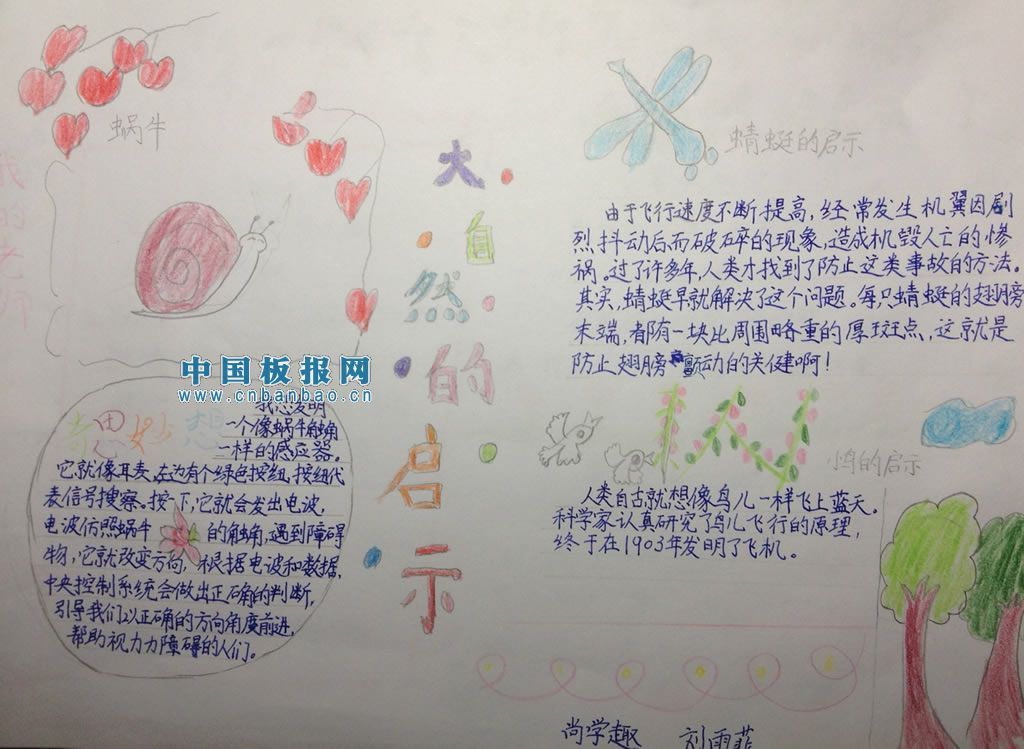 蜗牛
大自然的启示
蜻蜓的启示
由于飞行速度不断提高,经常发生机翼因剧
烈抖动后而破碎的现象,造成机毁人亡的惨
祸。过了许多年,人类才找到了防止这类事故的方法。
其实,蜻蜓早就解决了这个问题。每只蜻蜓的翅膀
末端,都有一块比周围略重的厚斑点,这就是
防止翅膀颤动的关健啊!
中国板报网
www.cnbanbao.cn
奇思妙想
我想发明
一个像蜗牛触角
一样的感应器。
它就像耳麦,左边有个绿色按纽,按纽代
表信号搜察。按一下,它就会发出电波,
电波仿照蜗牛的角触角,遇到障碍
物,它就改变方向,根据电波和数据,
中央控制系统会做出正确的判断,
引导我们以正确的方向角度前进,
帮助视力力障碍的人们。
小鸟的启示
人类自古就想像鸟儿一样飞上蓝天。
科学家认真研究了鸟儿飞行的原理,
终于在1903年发明了飞机。
尚学趣 刘雨菲